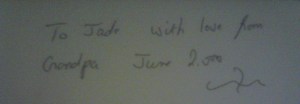 To Jade with love from
Grandpa June 2.000